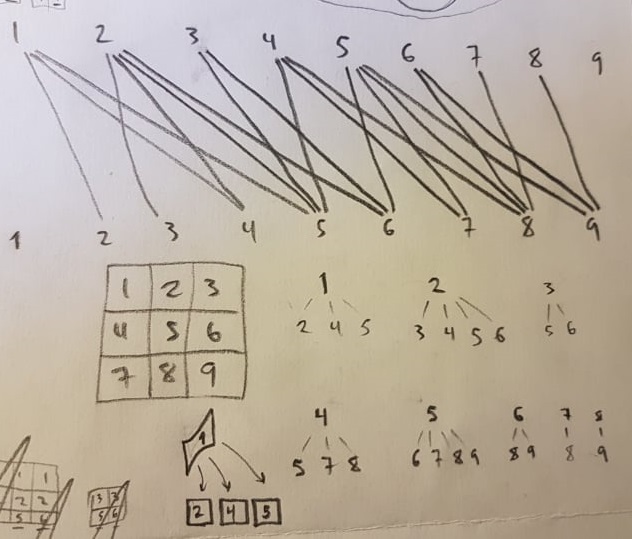 1 2 3 4 5 6 7 8 9
1 2 3 4 5 6 7 8 9
1 2 3
4 5 6
7 8 9
1
2 4 5
2
3 4 5 6
3
5 6
4
5 7 8
5
6 7 8 9
6
8 9
7
8
8
9
1
2 4 5
1 1
2 2
3 3